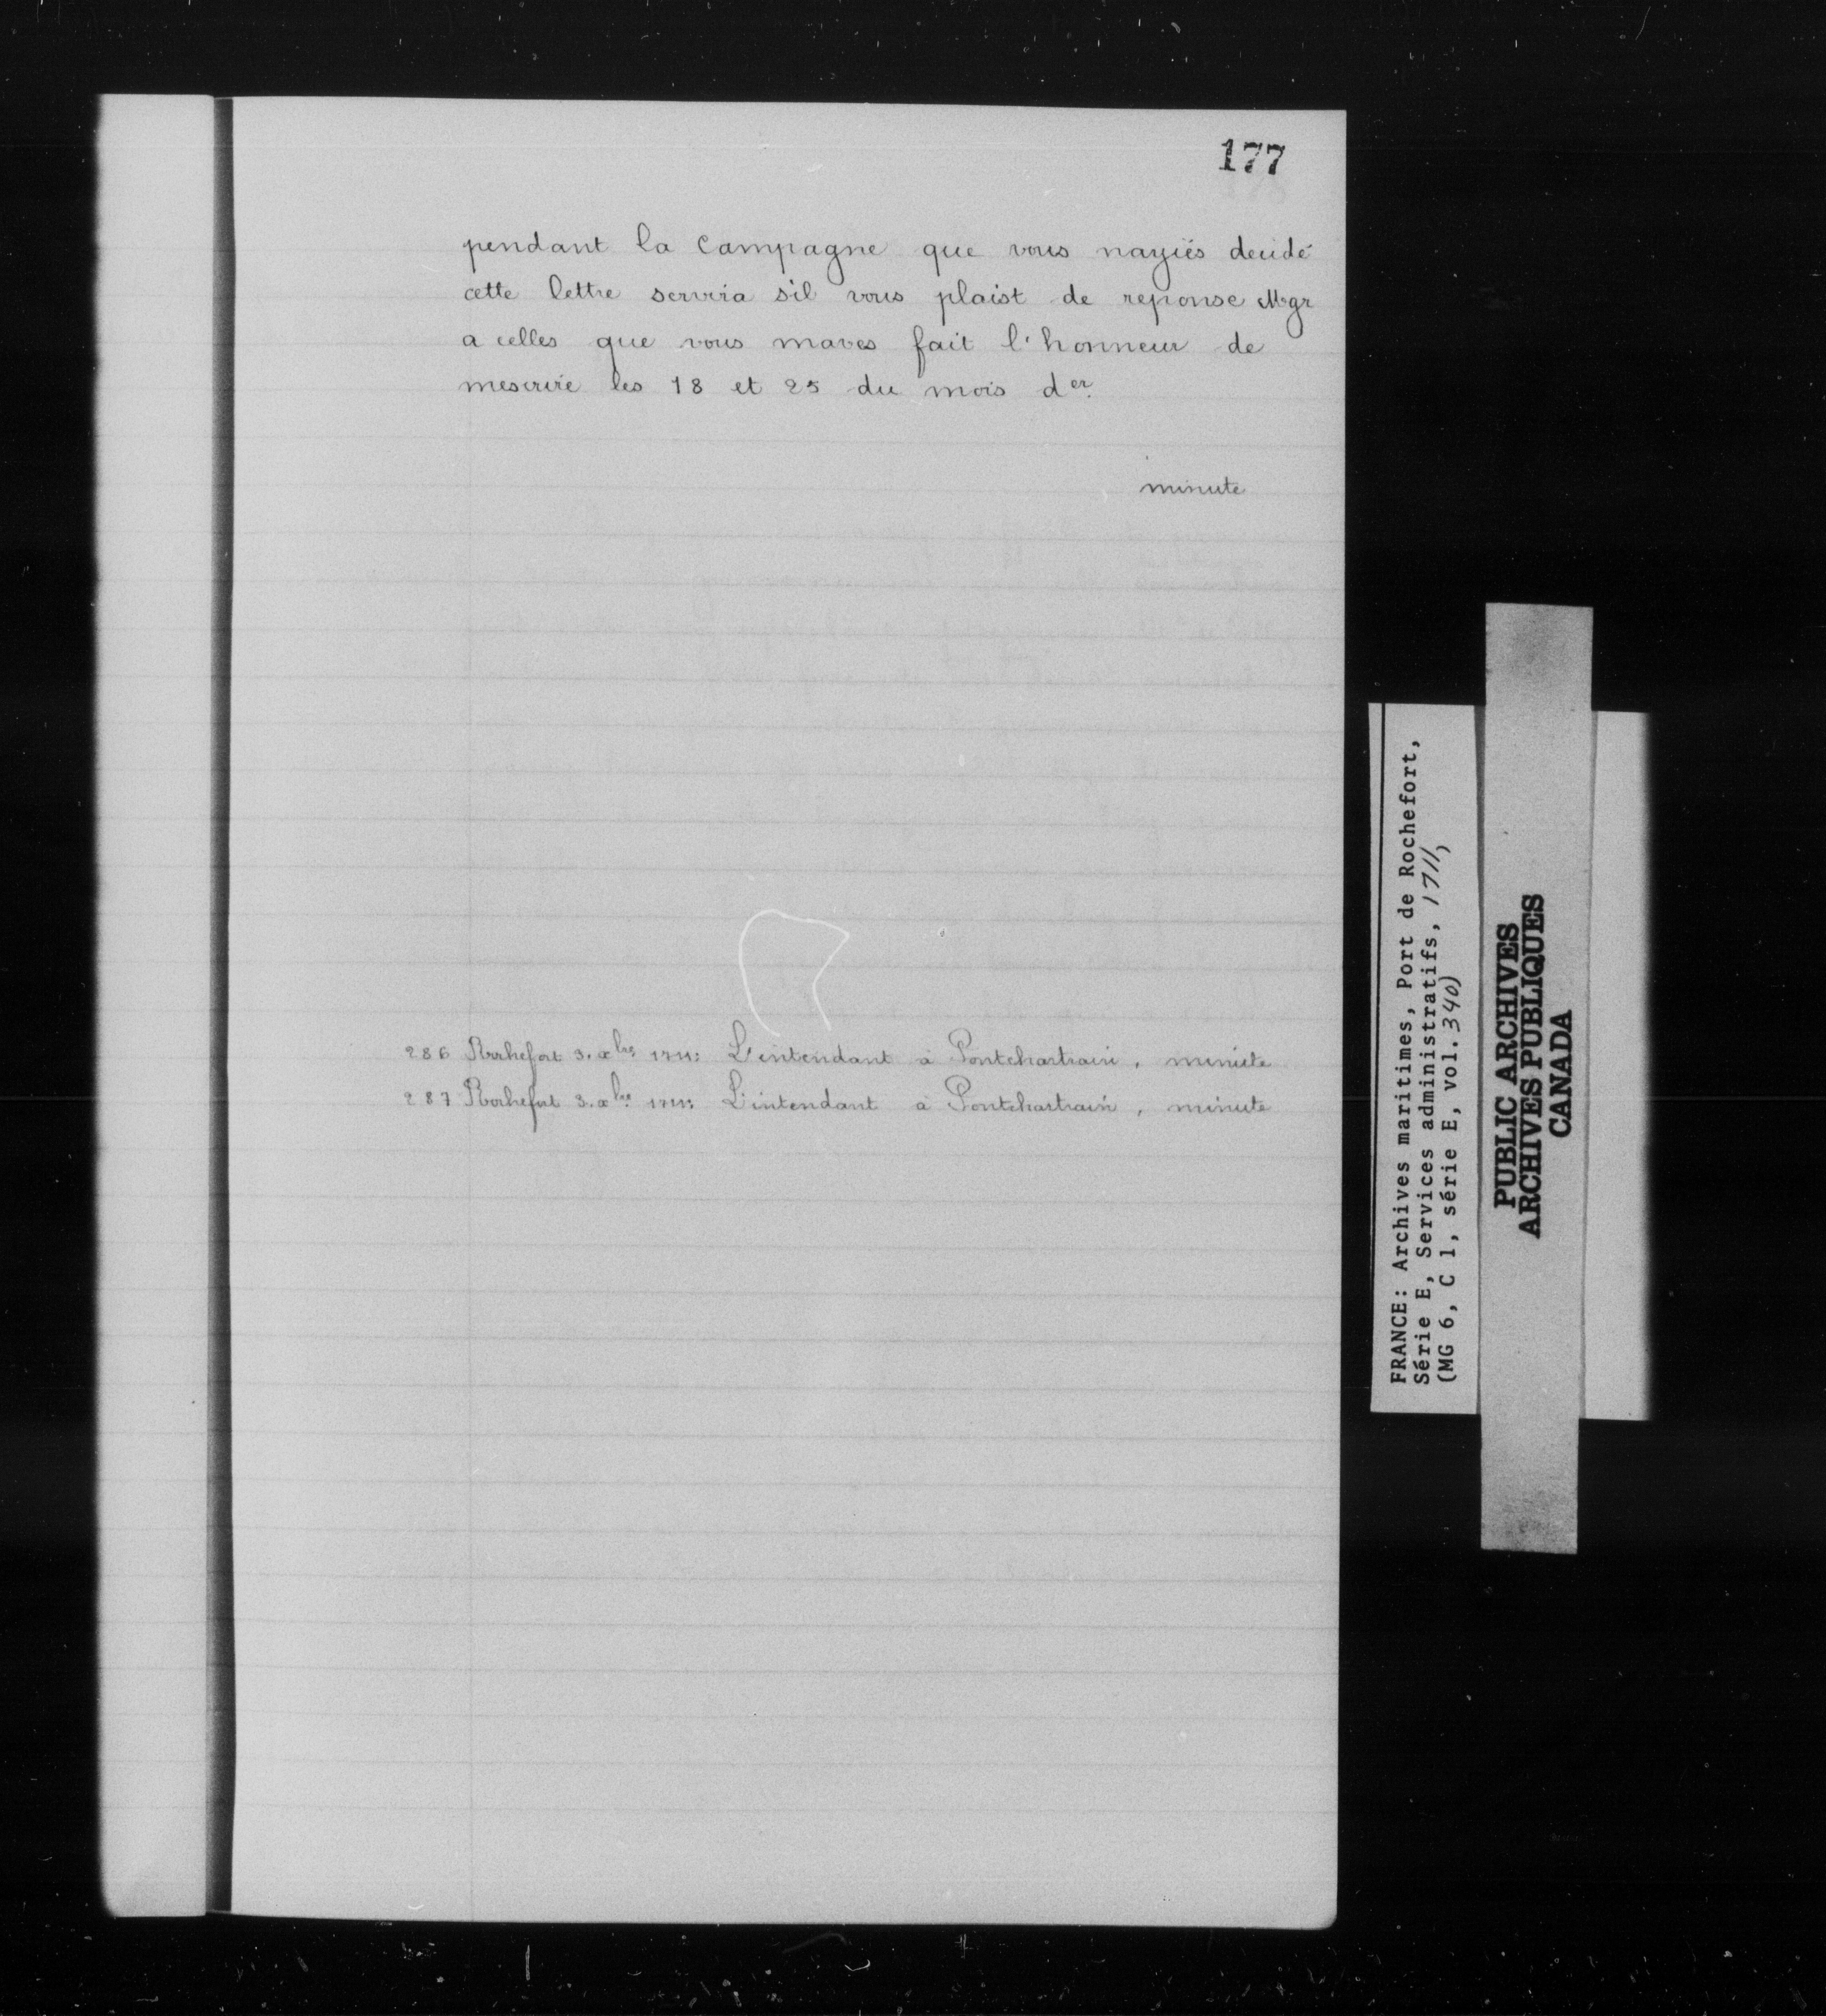 177
pendant la Campagne que vous nayiés decidé
cette lettre servira s'il vous plaist de reponse Mgr
a celles que vous maves fait l'honneur de
mescrire les 18 et 25 du mois der.
minute
286 Rochefort 3. xbre 1711: L'intendant à Pontchartrain, minute
287 Rochefort 3. xbre 1711: L'intendant à Pontchartrain, minute
FRANCE: Archives maritimes, Port de Rochefort,
Série E, Services administratifs, 1711,
(MG 6, C 1, série E, vol. 340)
PUBLIC ARCHIVES
ARCHIVES PUBLIQUES
CANADA